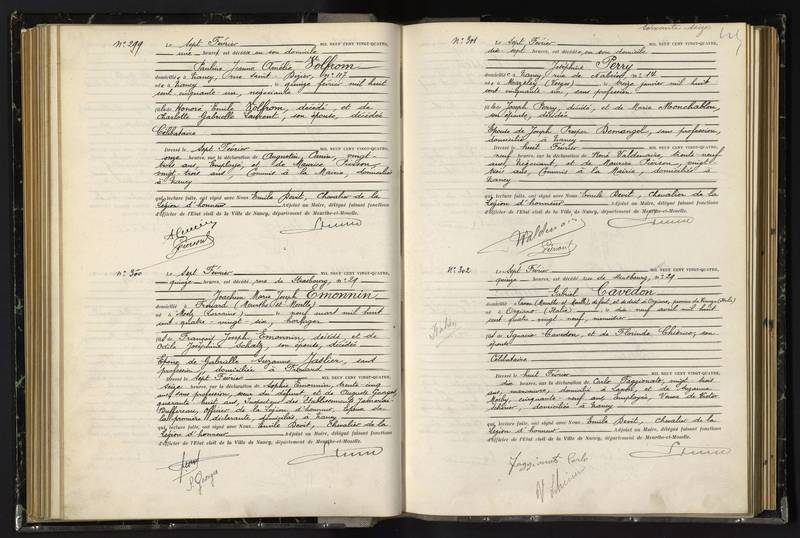 N° 299
Le Sept Février MIL NEUF CENT VINGT-QUATRE,
une heures, est décédée en son domicile
Pauline Jeanne Amélie Wolfrom
domiciliée à Nancy, rue Saint-Dizier, n° 117
née à Nancy le quinze février mil huit
cent cinquante un, négociante
fille Honoré Emile Wolfrom, décédé, et de
Charlotte Gabrielle Laurent, son épouse, décédée
Célibataire
Dressé le Sept Février MIL NEUF CENT VINGT-QUATRE,
onze heures, sur la déclaration de Augustin vingt-
trois ans, Employé, et de Maurice Pierson
vingt trois ans, Commis à la Mairie, domiciliés
à Nancy
qui, lecture faite, ont signé avec Nous, Emile Devit, Chevalier de la
Légion d'honneur Adjoint au Maire, délégué faisant fonctions
d'Officier de l'Etat civil de la Ville de Nancy, département de Meurthe-et-Moselle.
Pierson
N° 300
Le Sept Février MIL NEUF CENT VINGT-QUATRE,
quinze heures, est décédé, rue de Strasbourg, n° 29
Joachim Marie Joseph Emonnin
domicilié à Frouard (Meurthe et Moselle)
né à Metz (Lorraine) le neuf mars mil huit
cent quatre vingt six, horloger
fils de François Joseph Emonnin, décédé et de
Joséphine son épouse, décédée
Epoux de Gabrielle Suzanne sans
profession, domiciliée à Frouard
Dressé le Sept Février MIL NEUF CENT VINGT-QUATRE,
seize heures, sur la déclaration de Sophie Emonnin, trente cinq
ans, sans profession, soeur du défunt, et de Auguste Georges
quarante huit ans, des Etablissements
officier de la Légion d'honneur, Epoux de
la première déclarante, domiciliés à Nancy
qui, lecture faite, ont signé avec Nous, Emile Devit, Chevalier de la
Légion d'honneur Adjoint au Maire, délégué faisant fonctions
d'Officier de l'Etat civil de la Ville de Nancy, département de Meurthe-et-Moselle.
S. Georges
soixante seize
N° 301
Le Sept Février MIL NEUF CENT VINGT-QUATRE,
dix sept heures, est décédée, en son domicile
Joséphine Perry
domiciliée à Nancy, rue de n° 14
née à Mazeley (Vosges) le treize janvier mil huit
cent cinquante un, sans profession
fille Joseph Perry, décédé, et de Marie Monchablon,
son épouse, décédée
Epouse de Joseph Prosper Demangel, sans profession,
domicilié, à Nancy
Dressé le huit Février MIL NEUF CENT VINGT-QUATRE,
neuf heures, sur la déclaration de René Valdenaire, trente neuf
ans, et de Maurice Pierson, vingt
trois ans, Commis à la Mairie, domiciliés à
Nancy
qui, lecture faite, ont signé avec Nous, Emile Devit, Chevalier de la
Légion d'honneur Adjoint au Maire, délégué faisant fonctions
d'Officier de l'Etat civil de la Ville de Nancy, département de Meurthe-et-Moselle.
Pierson
N° 302
Le Sept Février MIL NEUF CENT VINGT-QUATRE,
quinze heures, est décédé rue de Strasbourg, n° 29
Gabriel Cavedon
domicilié à (Meurthe et Moselle)
né à Orgiano (Italie) le dix neuf avril mil huit
cent quatre vingt neuf,
fils de Ignazio Cavedon, et de Florinda son
épouse
Célibataire
Dressé le huit Février MIL NEUF CENT VINGT-QUATRE,
dix heures, sur la déclaration de Carlo Faggionato, vingt trois
ans, manoeuvre, domicilié à et de Suzanne
cinquante neuf ans, employée, Veuve de Victor
domiciliée à Nancy
qui, lecture faite, ont signé avec Nous, Emile Devit, Chevalier de la
Légion d'honneur Adjoint au Maire, délégué faisant fonctions
d'Officier de l'Etat civil de la Ville de Nancy, département de Meurthe-et-Moselle.
Faggionato Carlo